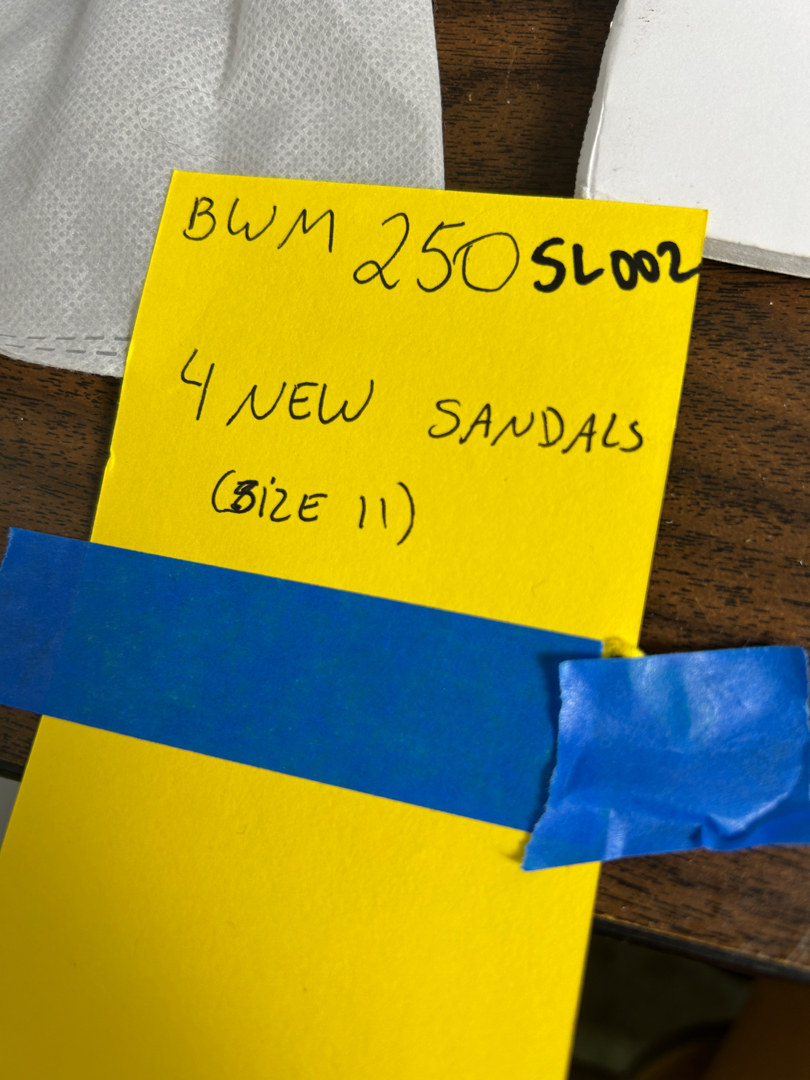 BWM 250 SL002
4 NEW SANDALS
(SIZE 11)